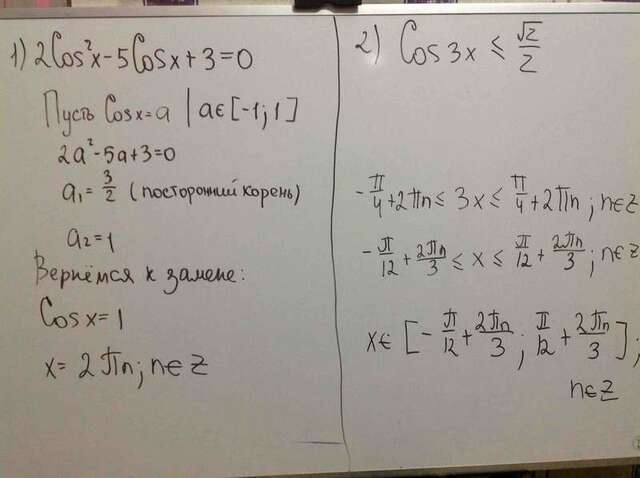 1) 2Cos²x-5Cosx+3=0
Пусть Cosx=a | a∈[-1;1]
2a²-5a+3=0
a₁=3/2 (посторонний корень)
a₂=1
Вернёмся к замене:
Cosx=1
x=2πn; n∈Z
2) Cos3x ≤ √2/2
-π/4+2πn ≤ 3x ≤ π/4+2πn; n∈Z
-π/12+2πn/3 ≤ x ≤ π/12+2πn/3; n∈Z
x∈[-π/12+2πn/3; π/12+2πn/3];
n∈Z